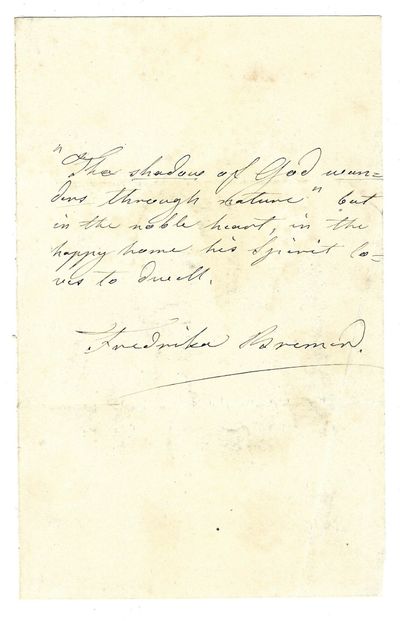 "The shadow of God wan=
ders through nature" but
in the noble heart, in the
happy home his Spirit lo=
ves to dwell.
Fredrika Bremer.